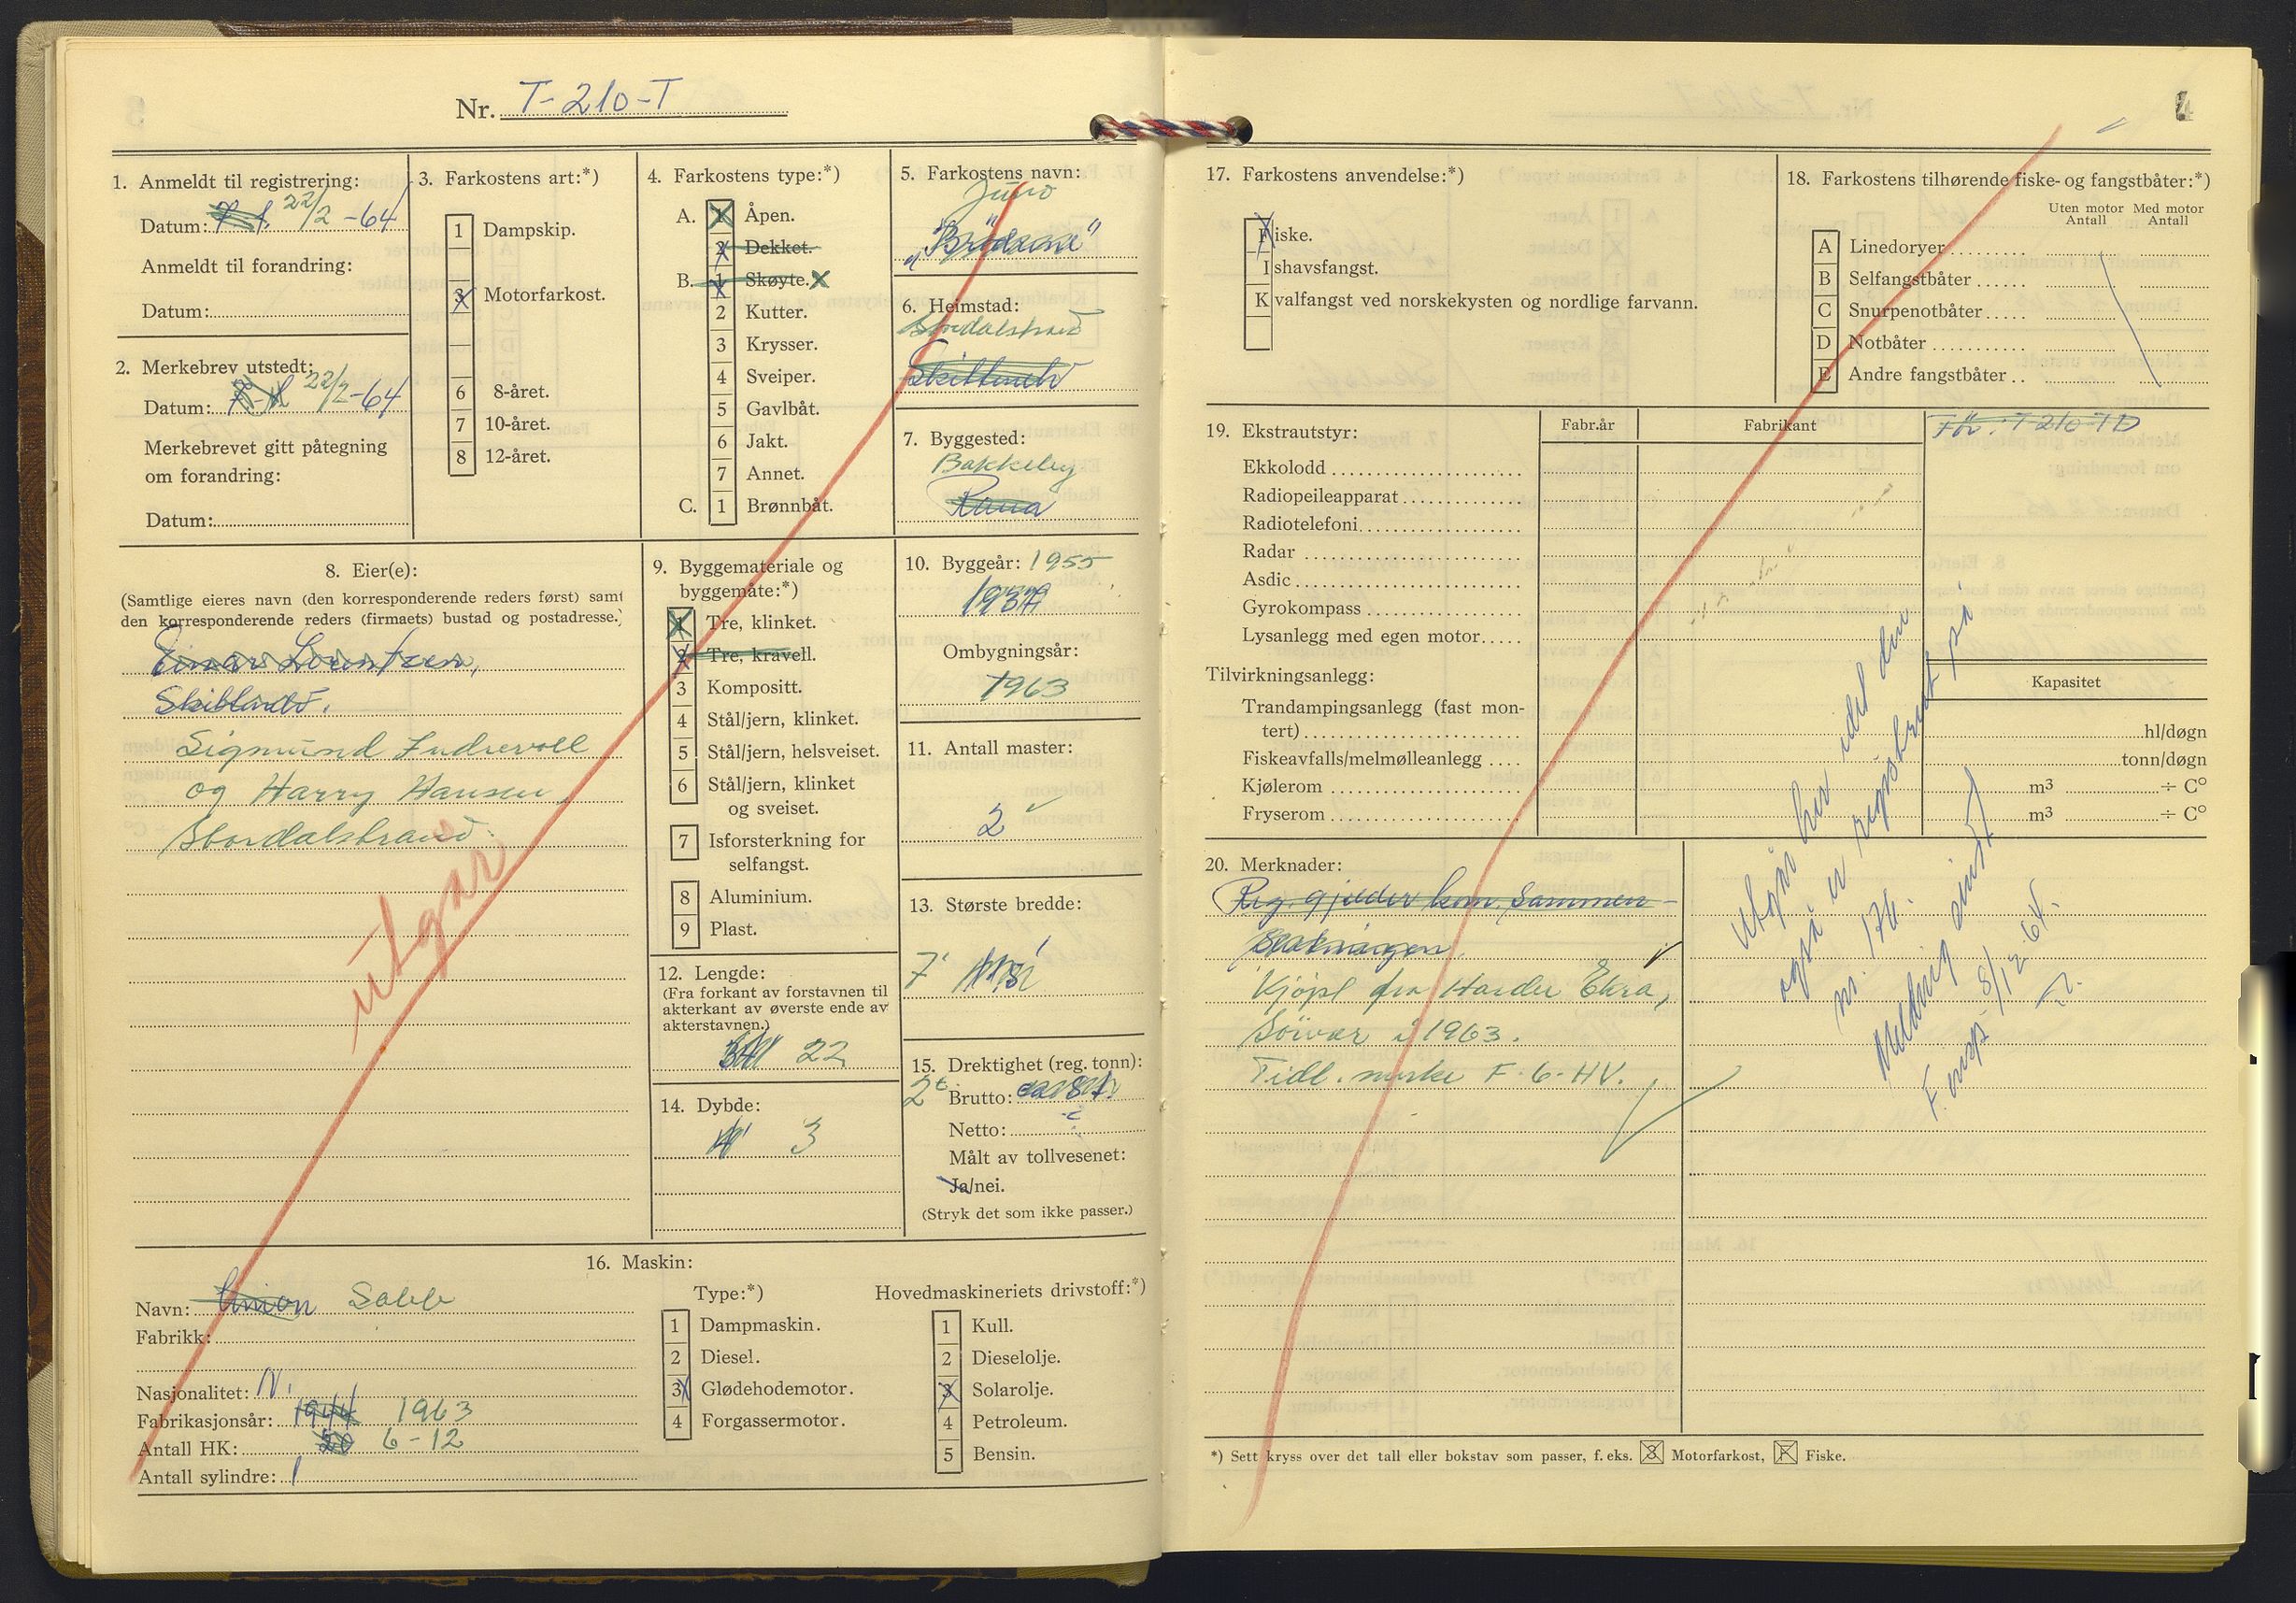 4
Nr. T-210-T
1. Anmeldt til registrering:
Datum: 22/2 -64
Anmeldt til forandring:
Datum:
2. Merkebrev utstedt:
Datum: 22/2 -64
Merkebrevet gitt påtegning
om forandring:
Datum:
3. Farkostens art:*)
1 Dampskip.
3 Motorfarkost.
6 8-året.
7 10-året.
8 12-året.
4. Farkostens type:*)
A. 1 Åpen.
2 Dekket.
B. 1 Skøyte. X
2 Kutter.
3 Krysser.
4 Sveiper.
5 Gavlbåt.
6 Jakt.
7 Annet.
C. 1 Brønnbåt.
5. Farkostens navn:
Juno
„Brødrene"
6. Heimstad:
Stordalstrand
7. Byggested:
Bakkeby
Rana
8. Eier(e):
(Samtlige eieres navn (den korresponderende reders først) samt
den korresponderende reders (firmaets) bustad og postadresse.)
Einar Lorentzen,
Sigmund Indrevoll
og Harry Hansen,
Stordalstrand.
utgår
9. Byggemateriale og
byggemåte:*)
1 Tre, klinket.
2 Tre, kravell.
3 Kompositt.
4 Stål/jern, klinket.
5 Stål/jern, helsveiset.
6 Stål/jern, klinket
og sveiset.
7 Isforsterkning for
selfangst.
8 Aluminium.
9 Plast.
10. Byggeår: 1955
Ombygningsår:
1963
11. Antall master:
2
12. Lengde:
(Fra forkant av forstavnen til
akterkant av øverste ende av
akterstavnen.)
22
13. Største bredde:
7'
14. Dybde:
3
15. Drektighet (reg. tonn):
2t Brutto:
Netto:
Målt av tollvesenet:
Ja/nei.
(Stryk det som ikke passer.)
16. Maskin:
Navn: Union Sabb
Fabrikk:
Nasjonalitet: N.
Fabrikasjonsår: 1944 1963
Antall HK: 20 6-12
Antall sylindre: 1
Type:*)
1 Dampmaskin.
2 Diesel.
3 Glødehodemotor.
4 Forgassermotor.
Hovedmaskineriets drivstoff:*)
1 Kull.
2 Dieselolje.
3 Solarolje.
4 Petroleum.
5 Bensin.
17. Farkostens anvendelse:*)
Fiske.
Ishavsfangst.
Kvalfangst ved norskekysten og nordlige farvann.
18. Farkostens tilhørende fiske- og fangstbåter:*)
Uten motor Antall Med motor Antall
A Linedoryer
B Selfangstbåter
C Snurpenotbåter
D Notbåter
E Andre fangstbåter
19. Ekstrautstyr: Fabr.år Fabrikant
Før: T-210-TD
Ekkolodd
Radiopeileapparat
Radiotelefoni
Radar
Asdic
Gyrokompass
Lysanlegg med egen motor
Tilvirkningsanlegg: Kapasitet
Trandampingsanlegg (fast mon-
tert) hl/døgn
Fiskeavfalls/melmølleanlegg tonn/døgn
Kjølerom m³ ÷ C°
Fryserom m³ ÷ C°
20. Merknader:
Reg. gjelder kom. sammen-
Kjøpt fra Harder Ekra,
i 1963.
Tidl. merke F-6-HV.
utgår her idet den
også er registrert på
nr. 176.
Melding dir.
F. 8/12-64.
*) Sett kryss over det tall eller bokstav som passer, f. eks. 3 Motorfarkost, F Fiske.